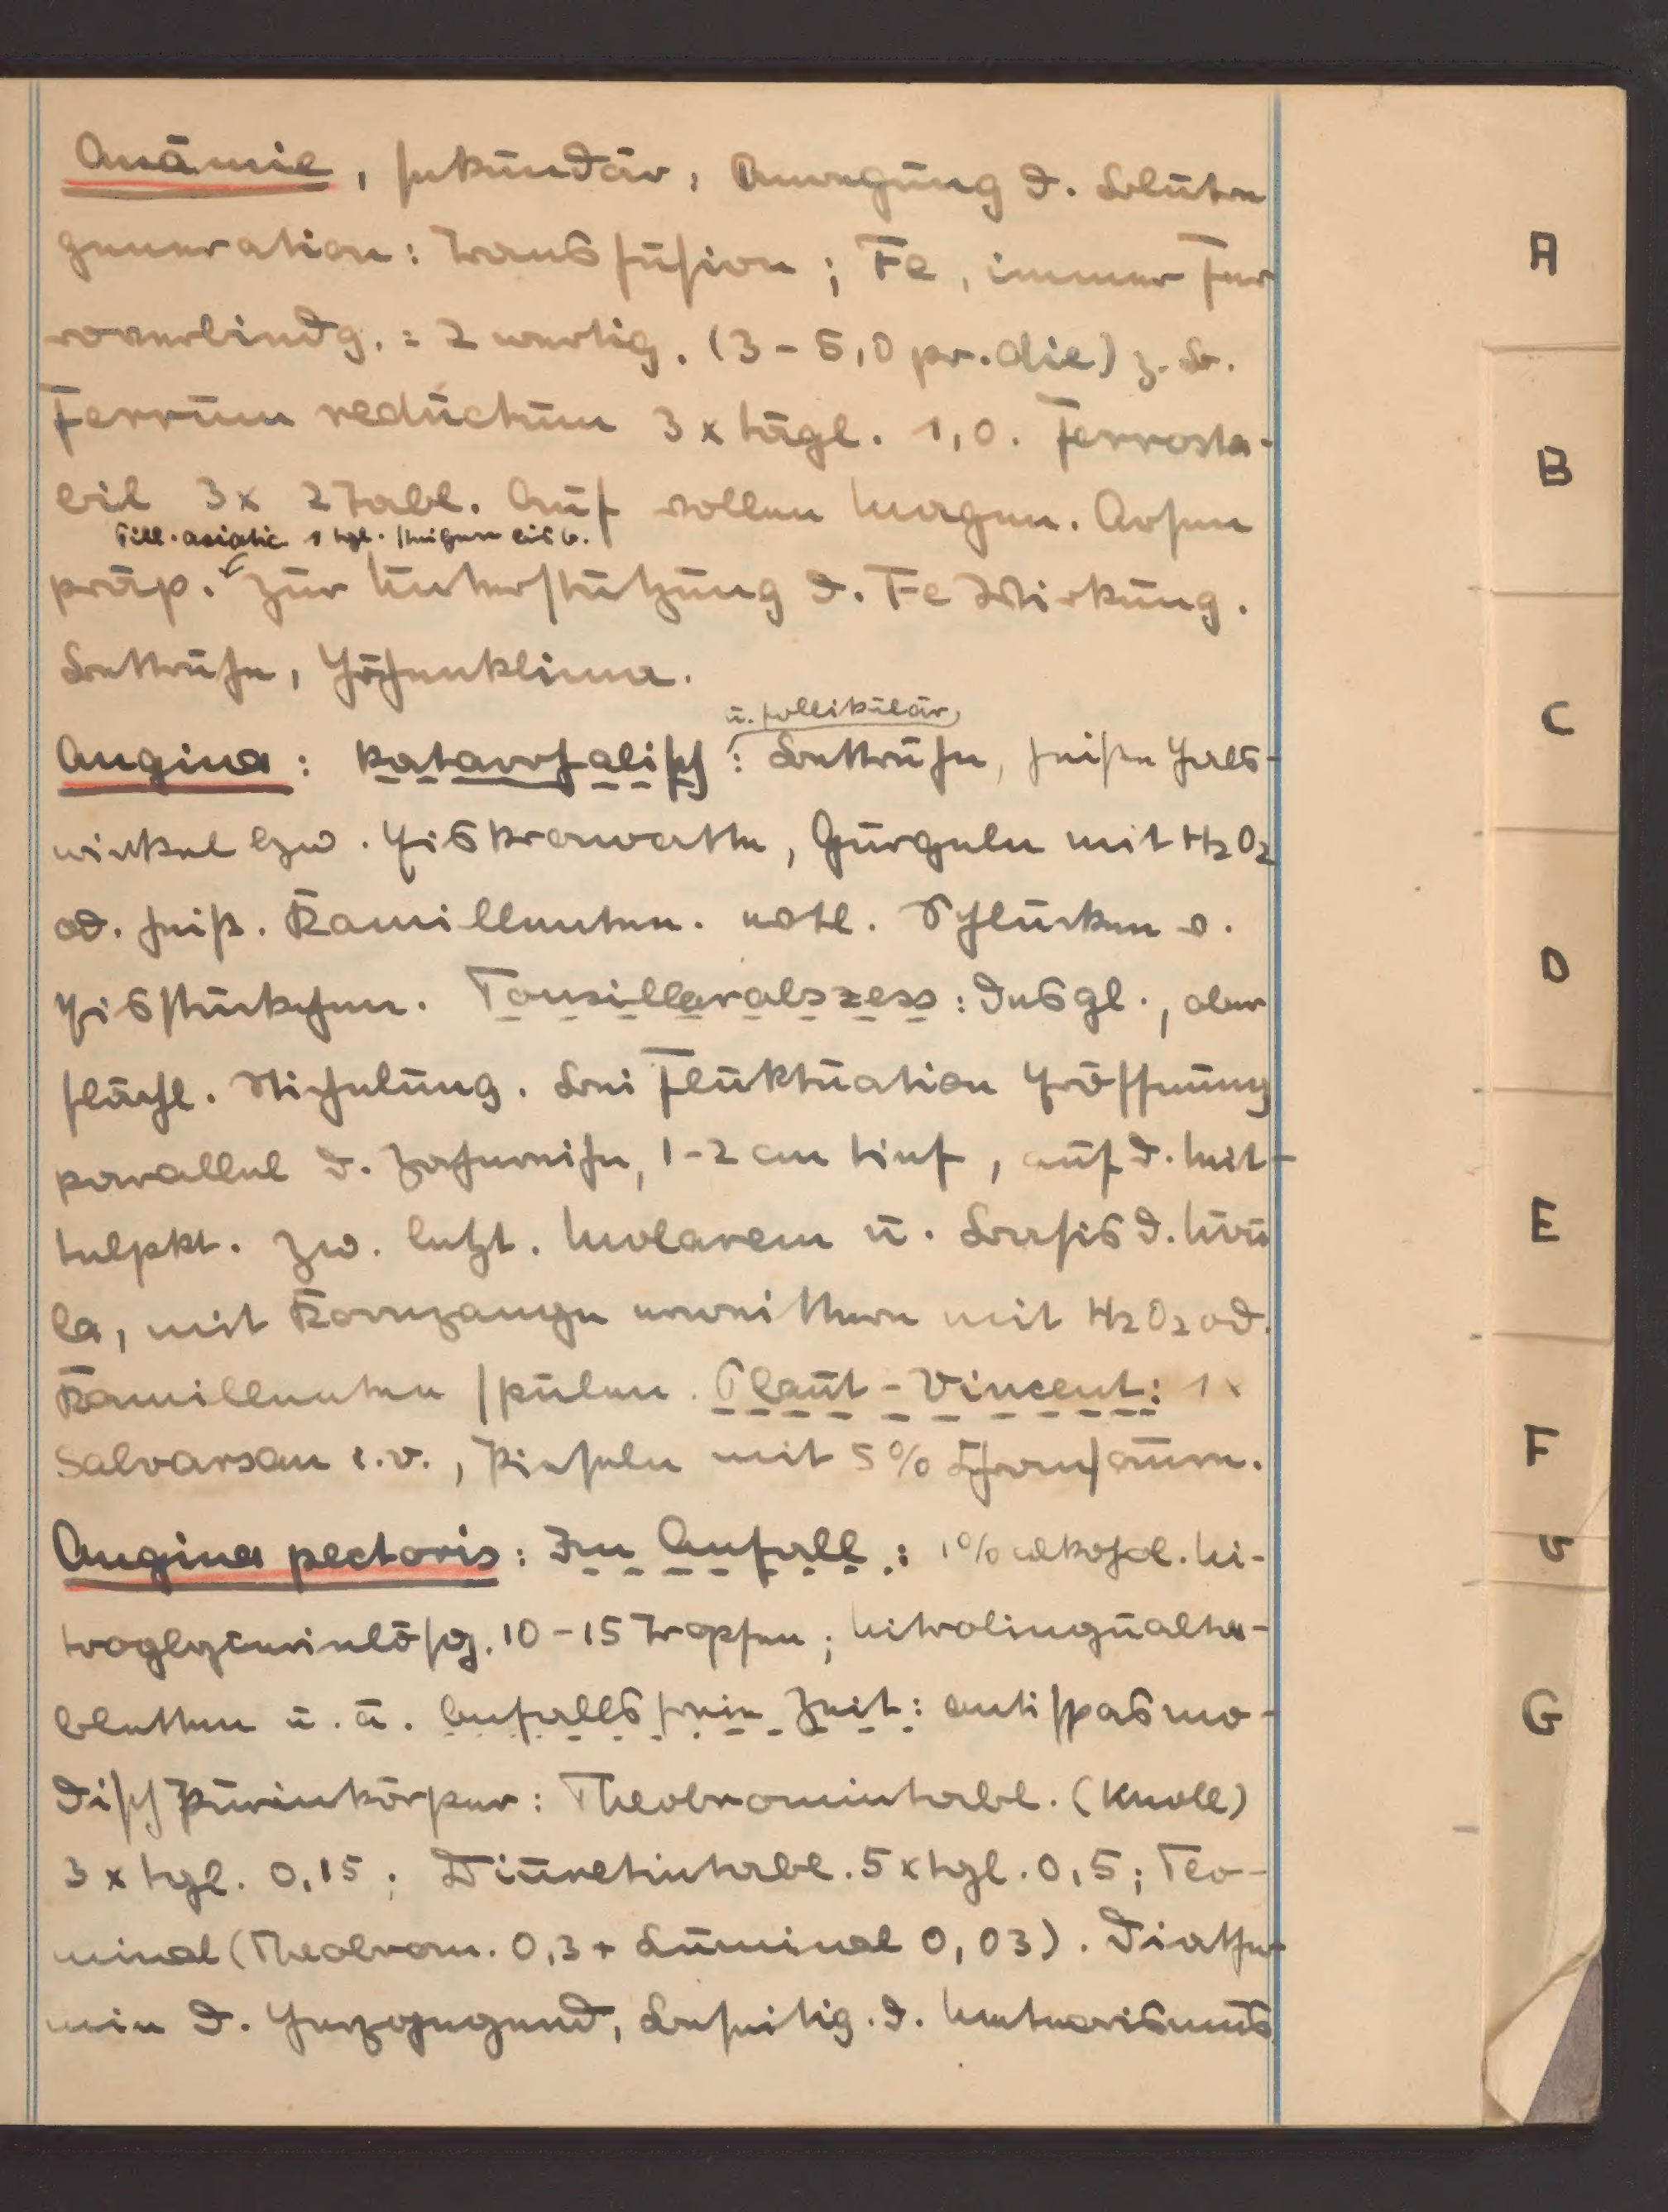 Anämie, sekundär, Anregung d. Blutre
generation: Transfusion; Fe, immer Fer
roverbindg. = 2 wertig. (3-5,0 pr. die) z. B.
Ferrum reductum 3 x tägl. 1,0. Ferrosta-
bil 3x 2 Tabl. Auf vollen Magen. Arsen
Pill. asiatic. 1 tgl. steigern bis 6.
präp. zur Unterstützung d. Fe Wirkung.
Bettruhe, Höhenklima.
u. follikulär
Angina: katarrhalisch: Bettruhe, heiße Hals-
wickel bzw. Eiskrawatte, Gurgeln mit H2O2
od. heiß. Kamillentee. evtl. Schlucken v.
Eisstückchen. Tonsillarabszess: desgl., ober
flächl. Stichelung. Bei Fluktuation Eröffnung
parallel d. Zahnreihe, 1-2 cm tief, auf d. Mit-
telpkt. zw. letzt. Molarem u. Basis d. Uvu
la, mit Kornzange erweittern mit H2O2 od.
Kamillentee spülen. Plaut-Vincent: 1x
Salvarsan i.v., Pinseln mit 5% Chromsäure.
Angina pectoris: Im Anfall: 1% alkohol. Ni-
troglycerinlösg. 10-15 Tropfen; Nitrolingualta-
bletten u. ä. Anfallsfreie Zeit: antispasmo-
disch Purinkörper: Theobromintabl. (Knoll)
3 x tgl. 0,15; Diuretintabl. 5 x tgl. 0,5; Teo-
minal (Theobrom. 0,3 + Luminal 0,03). Diather-
mie d. Herzgegend, Beseitig. d. Meteorismus
A
B
C
D
E
F
G
G